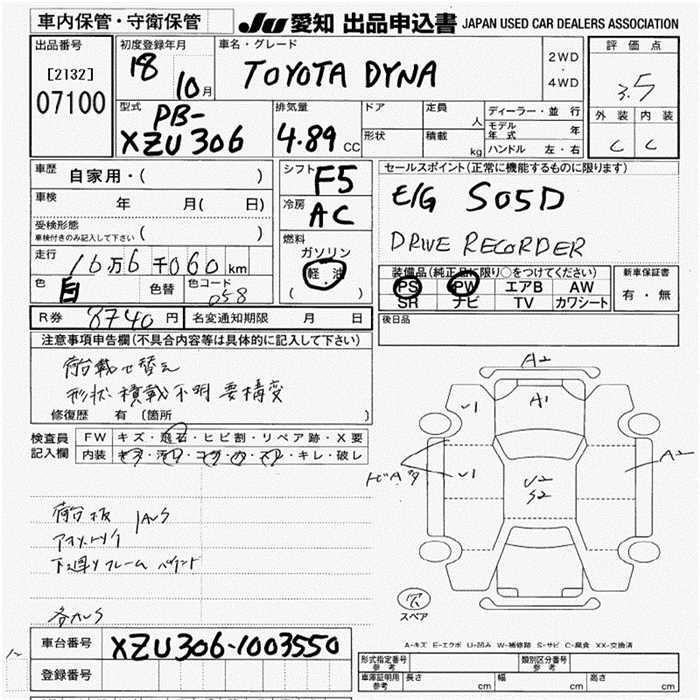 車内保管・守衛保管
JU 愛知 出品申込書 JAPAN USED CAR DEALERS ASSOCIATION
出品番号
[2132]
07100
初度登録年月
18 10月
車名・グレード
TOYOTA DYNA
2WD
・
4WD
評価点
3.5
外装 内装
C C
型式
PB-
XZU306
排気量
4.89 CC
ドア
定員
人
形状
積載
kg
ディーラー・並行
モデル年式 年
ハンドル 左・右
車歴
自家用・( )
車検
年 月( 日)
受検形態
車検付きのみ記入して下さい ( )
走行
16万6千060km
色
白
色替
色コード
058
シフト
F5
冷房
AC
燃料
ガソリン
軽・油
( )
セールスポイント(正常に機能するものに限ります)
E/G S05D
DRIVE RECORDER
装備品(純正品に限り○をつけてください)
PS PW エアB AW
SR ナビ TV カワシート
新車保証書
有・無
R券 8740円
名変通知期限 月 日
後日品
注意事項申告欄(不具合内容等は具体的に記入して下さい)
荷台載せ替え
形状 積載不明 要構変
修復歴 有 〔箇所 〕
検査員
記入欄
FW キズ・飛石・ヒビ割・リペア跡・X要
内装 キズ・汚れ・コゲ・穴・スレ・キレ・破レ
荷台板
下廻りフレーム ペイント
A2
A1
U1
U1
U2
S2
A2
スペア
A-キズ E-エクボ U-凹み W-補修跡 S-サビ C-腐食 XX-交換済
車台番号
XZU306-1003550
登録番号
形式指定番号
参考
類別区分番号
参考
車庫証明用
参考
長さ cm
幅 cm
高さ cm